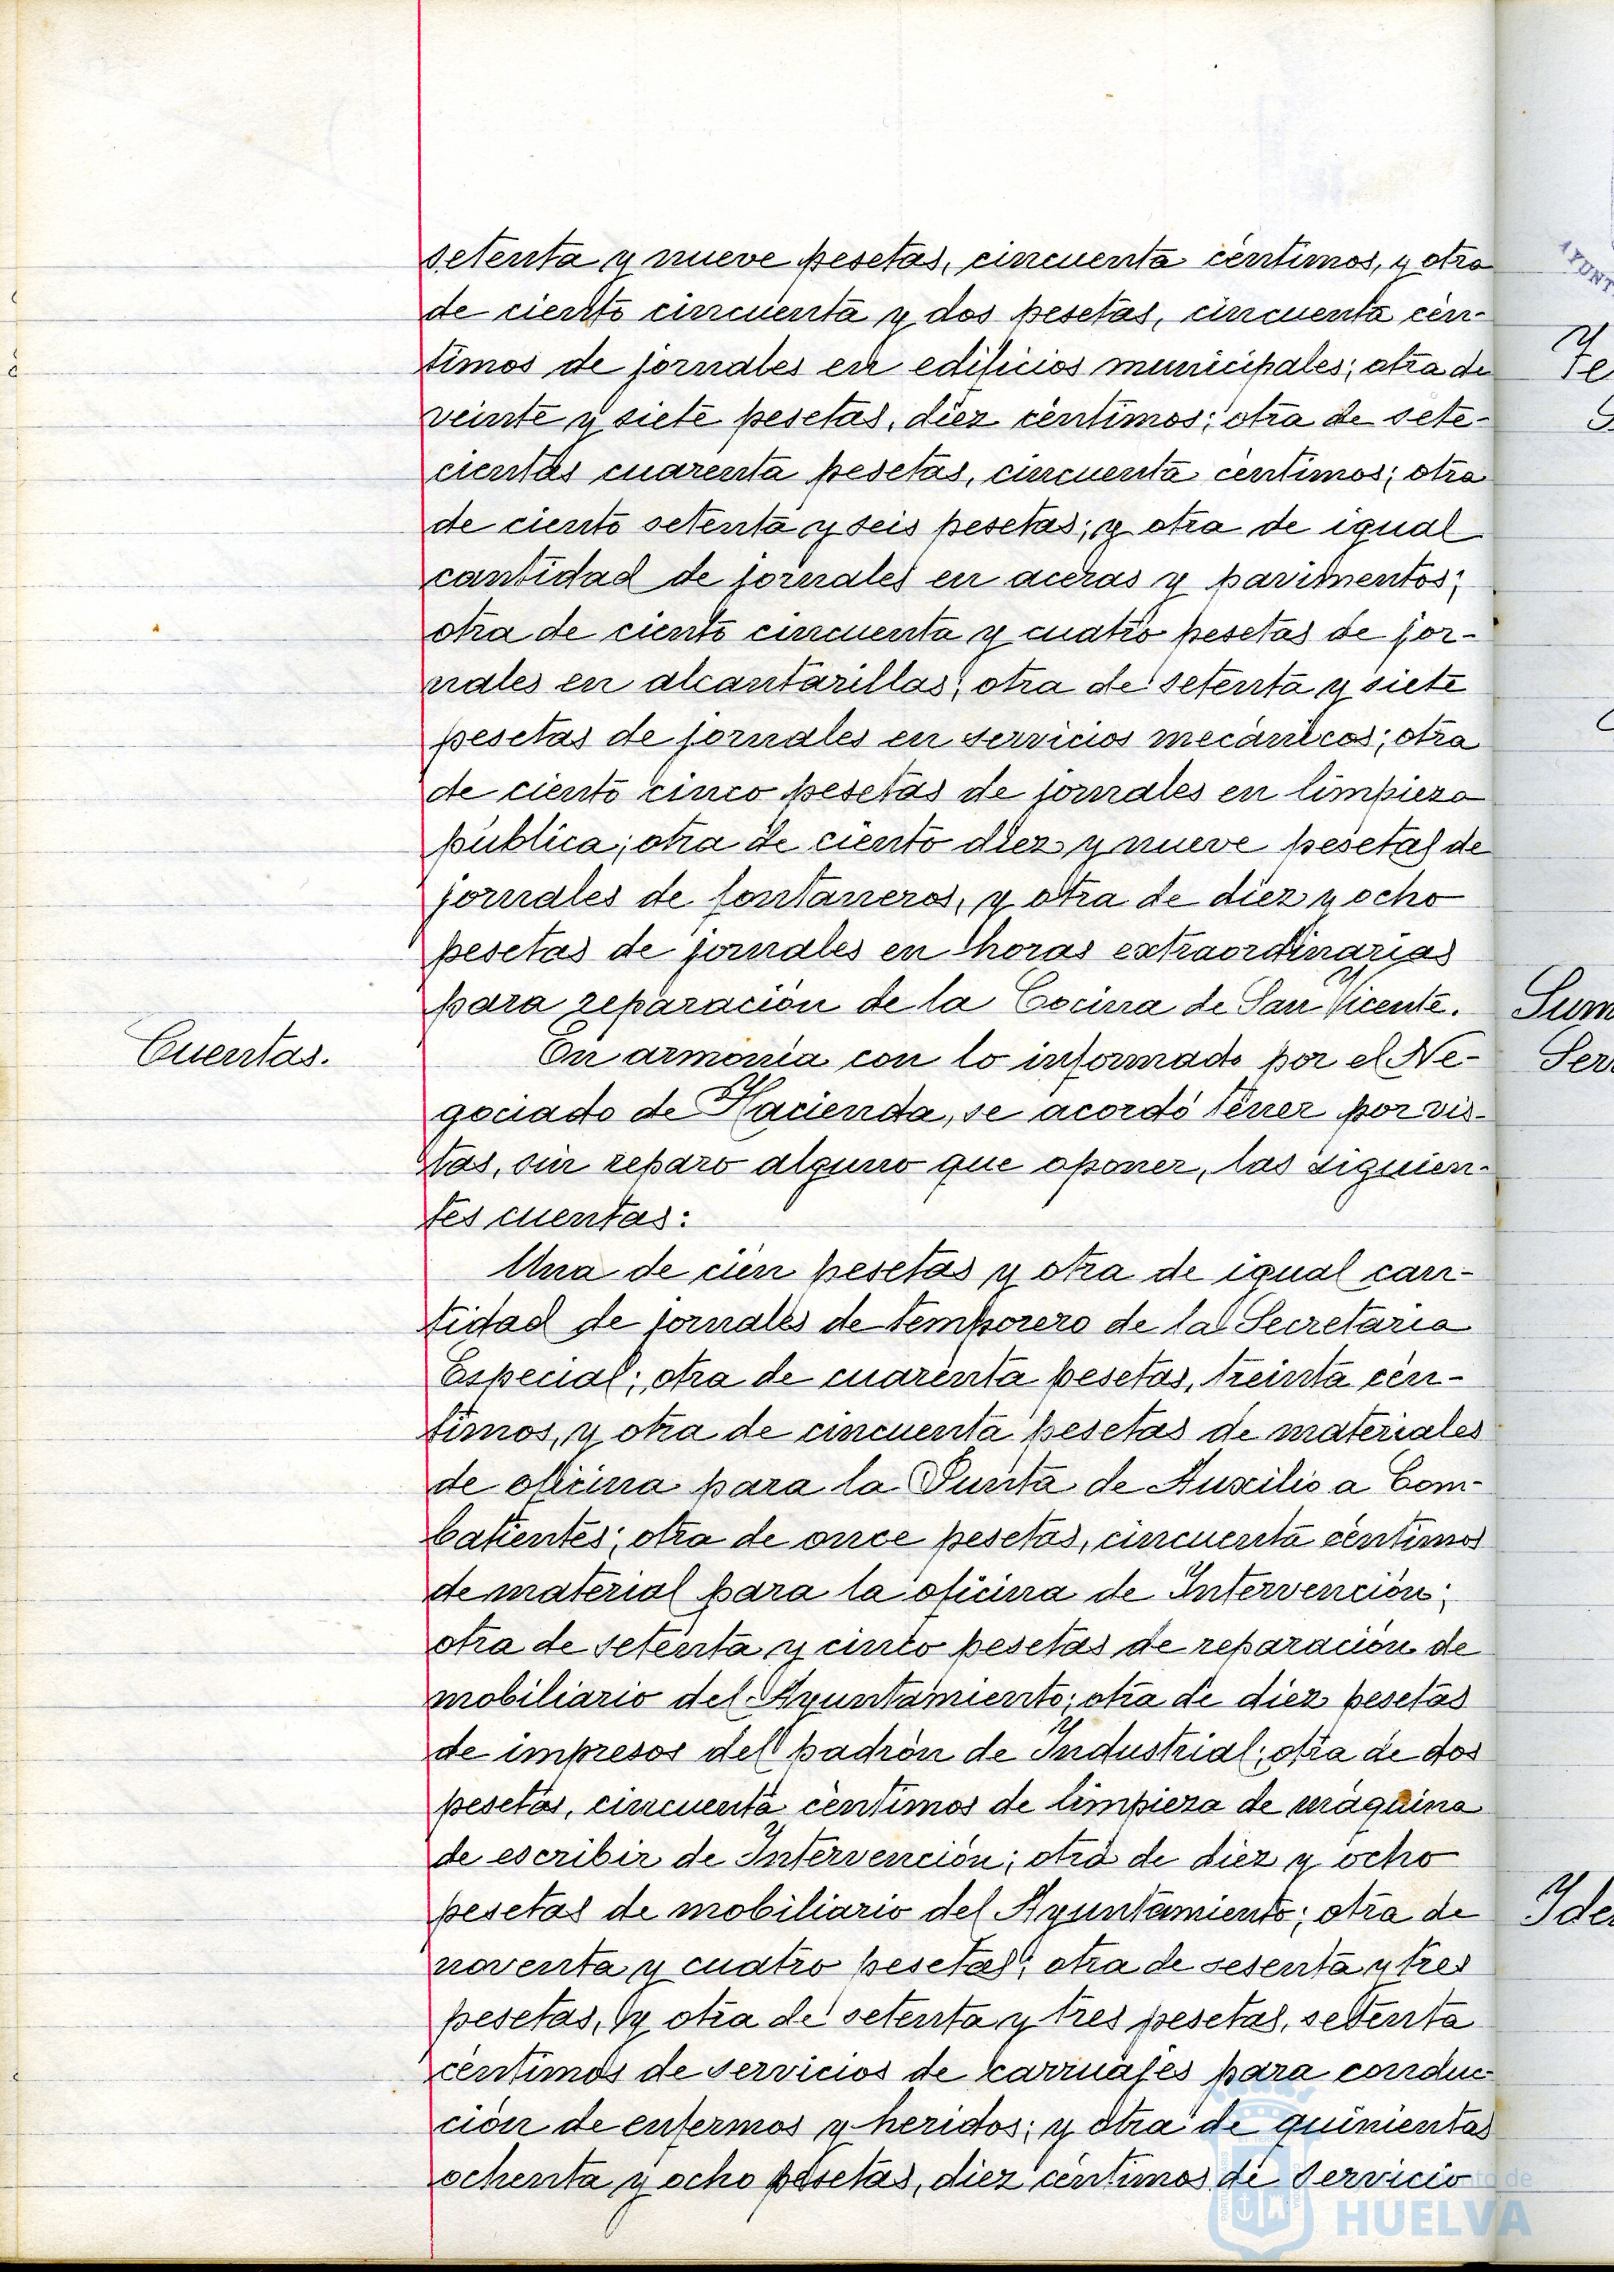 setenta y nueve pesetas, cincuenta céntimos, y otra
de ciento cincuenta y dos pesetas, cincuenta cén-
timos de jornales en edificios municipales; otra de
veinte y siete pesetas, diez céntimos; otra de sete-
cientas cuarenta pesetas, cincuenta centimos; otra
de ciento setenta y seis pesetas; y otra de igual
cantidad de jornales en aceras y pavimentos;
otra de ciento cincuenta y cuatro pesetas de jor-
nales en alcantarillas; otra de setenta y siete
pesetas de jornales en servicios mecánicos; otra
de ciento cinco pesetas de jornales en limpieza
pública; otra de ciento diez y nueve pesetas de
jornales de fontaneros, y otra de diez y ocho
pesetas de jornales en horas extraordinarias
para reparación de la Cocina de San Vicente.
Cuentas.
En armonía con lo informado por el Ne-
gociado de Hacienda, se acordó tener por vis-
tas, sin reparo alguno que oponer, las siguien-
tes cuentas:
Una de cien pesetas y otra de igual can-
tidad de jornales de temporero de la Secretaria
Especial; otra de cuarenta pesetas, treinta cén-
timos, y otra de cincuenta pesetas de materiales
de oficina para la Junta de Auxilio a Com-
batientes; otra de once pesetas, cincuenta céntimos
de material para la oficina de Intervención;
otra de setenta y cinco pesetas de reparación de
mobiliario del Ayuntamiento; otra de diez pesetas
de impresos del padrón de Industrial; otra de dos
pesetas, cincuenta céntimos de limpieza de máquina
de escribir de Intervención; otra de diez y ocho
pesetas de mobiliario del Ayuntamiento; otra de
noventa y cuatro pesetas; otra de sesenta y tres
pesetas, y otra de setenta y tres pesetas, setenta
céntimos de servicios de carruajes para conduc-
ción de enfermos y heridos; y otra de quinientas
ochenta y ocho pesetas, diez céntimos de servicio
AYUNT
Te
Sum
Ser
Ide
to de
HUELVA